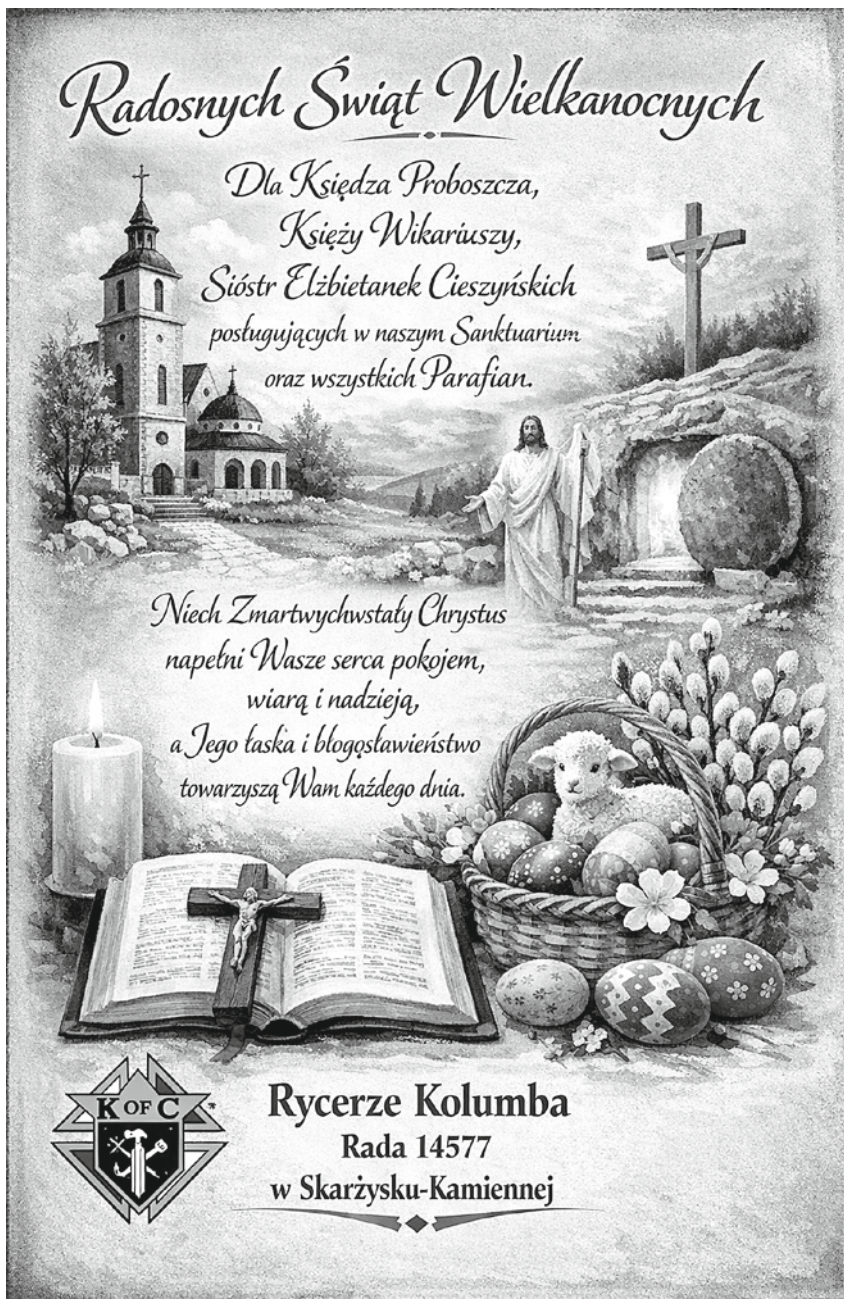 Radosnych Świąt Wielkanocnych
Dla Księdza Proboszcza,
Księży Wikariuszy,
Sióstr Elżbietanek Cieszyńskich
posługujących w naszym Sanktuarium
oraz wszystkich Parafian.
Niech Zmartwychwstały Chrystus
napełni Wasze serca pokojem,
wiarą i nadzieją,
a Jego łaska i błogosławieństwo
towarzyszą Wam każdego dnia.
K OF C
Rycerze Kolumba
Rada 14577
w Skarżysku-Kamiennej